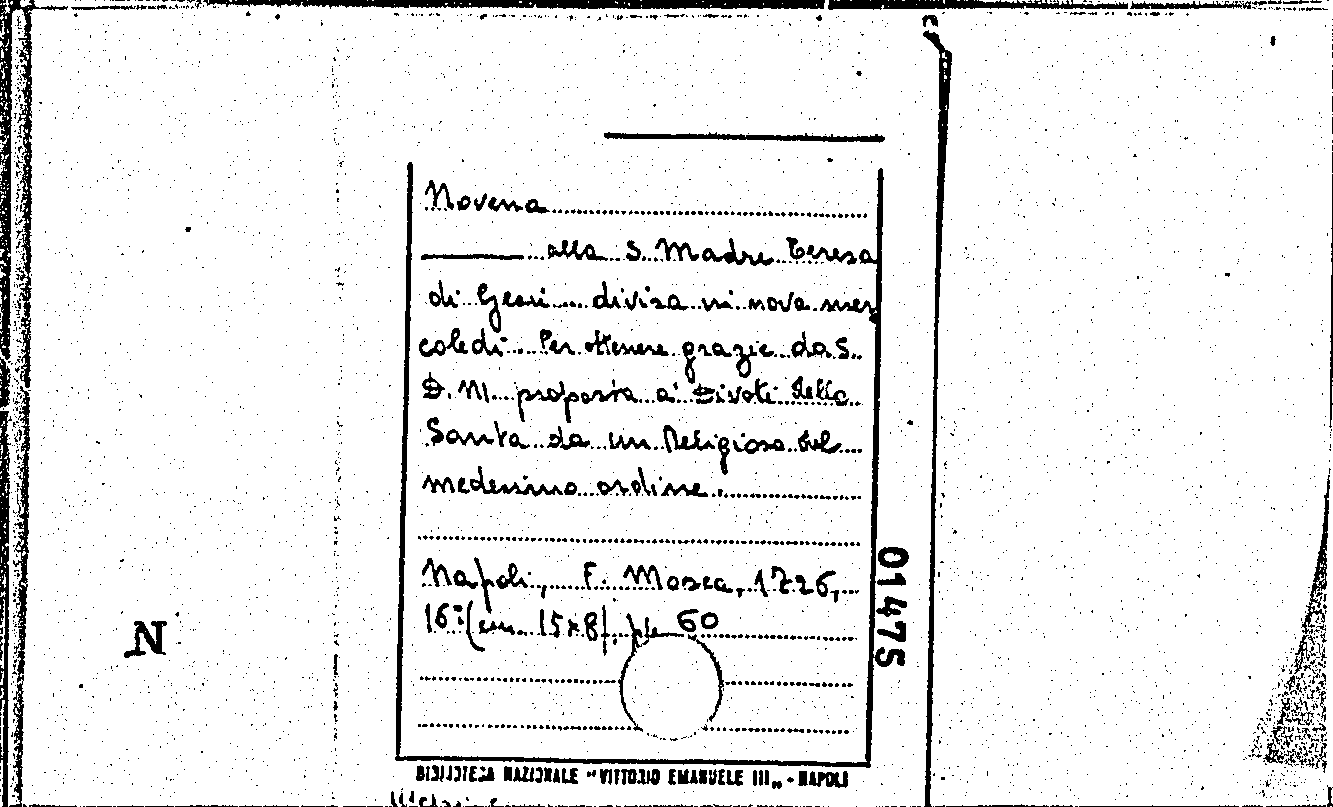 Novena
alla S. Madre Teresa
di Gesù... divisa in nove mer
coledì. Per ottenere grazie da S.
D. M. proposta a' Divoti della
Santa da un Religioso del
medesimo ordine.
Napoli, F. Mosca, 1726,
16° (cm. 15x8), pp. 60
01475
N
BIBLIOTECA NAZIONALE "VITTORIO EMANUELE III„ - NAPOLI